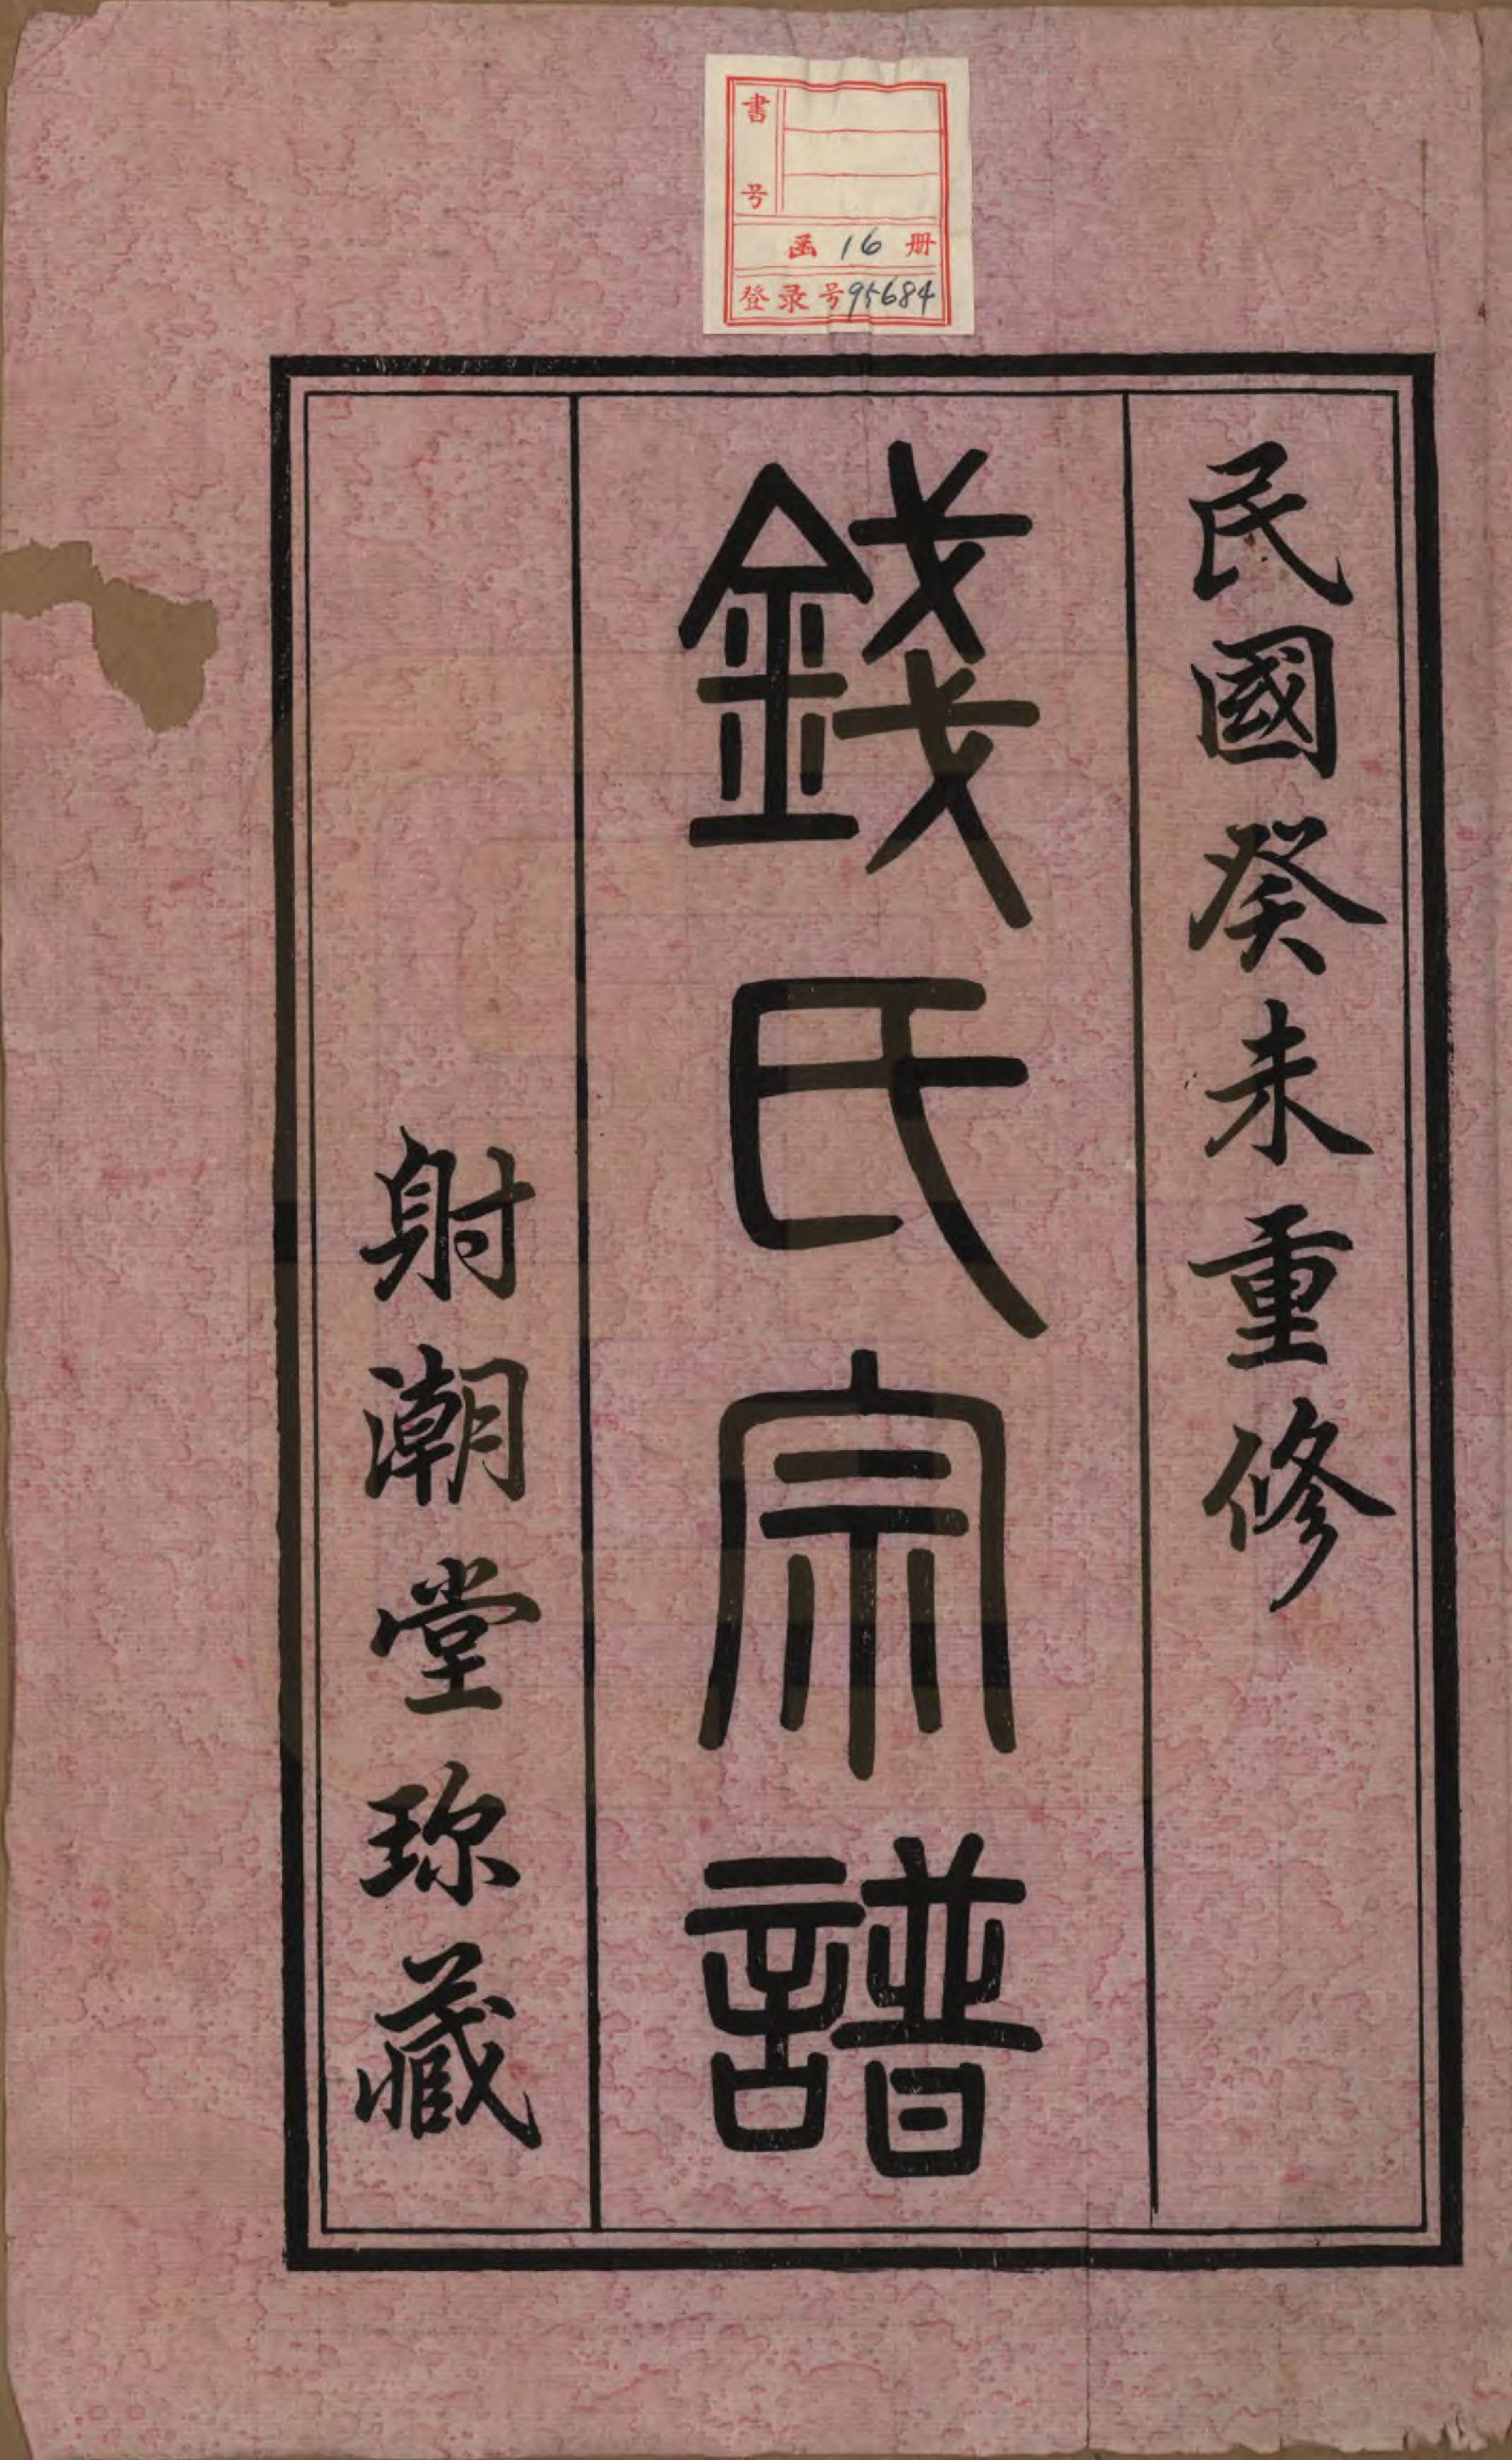 書号
函 16 册
登录号95684
民國癸未重修
錢氏宗譜
射潮堂珎藏